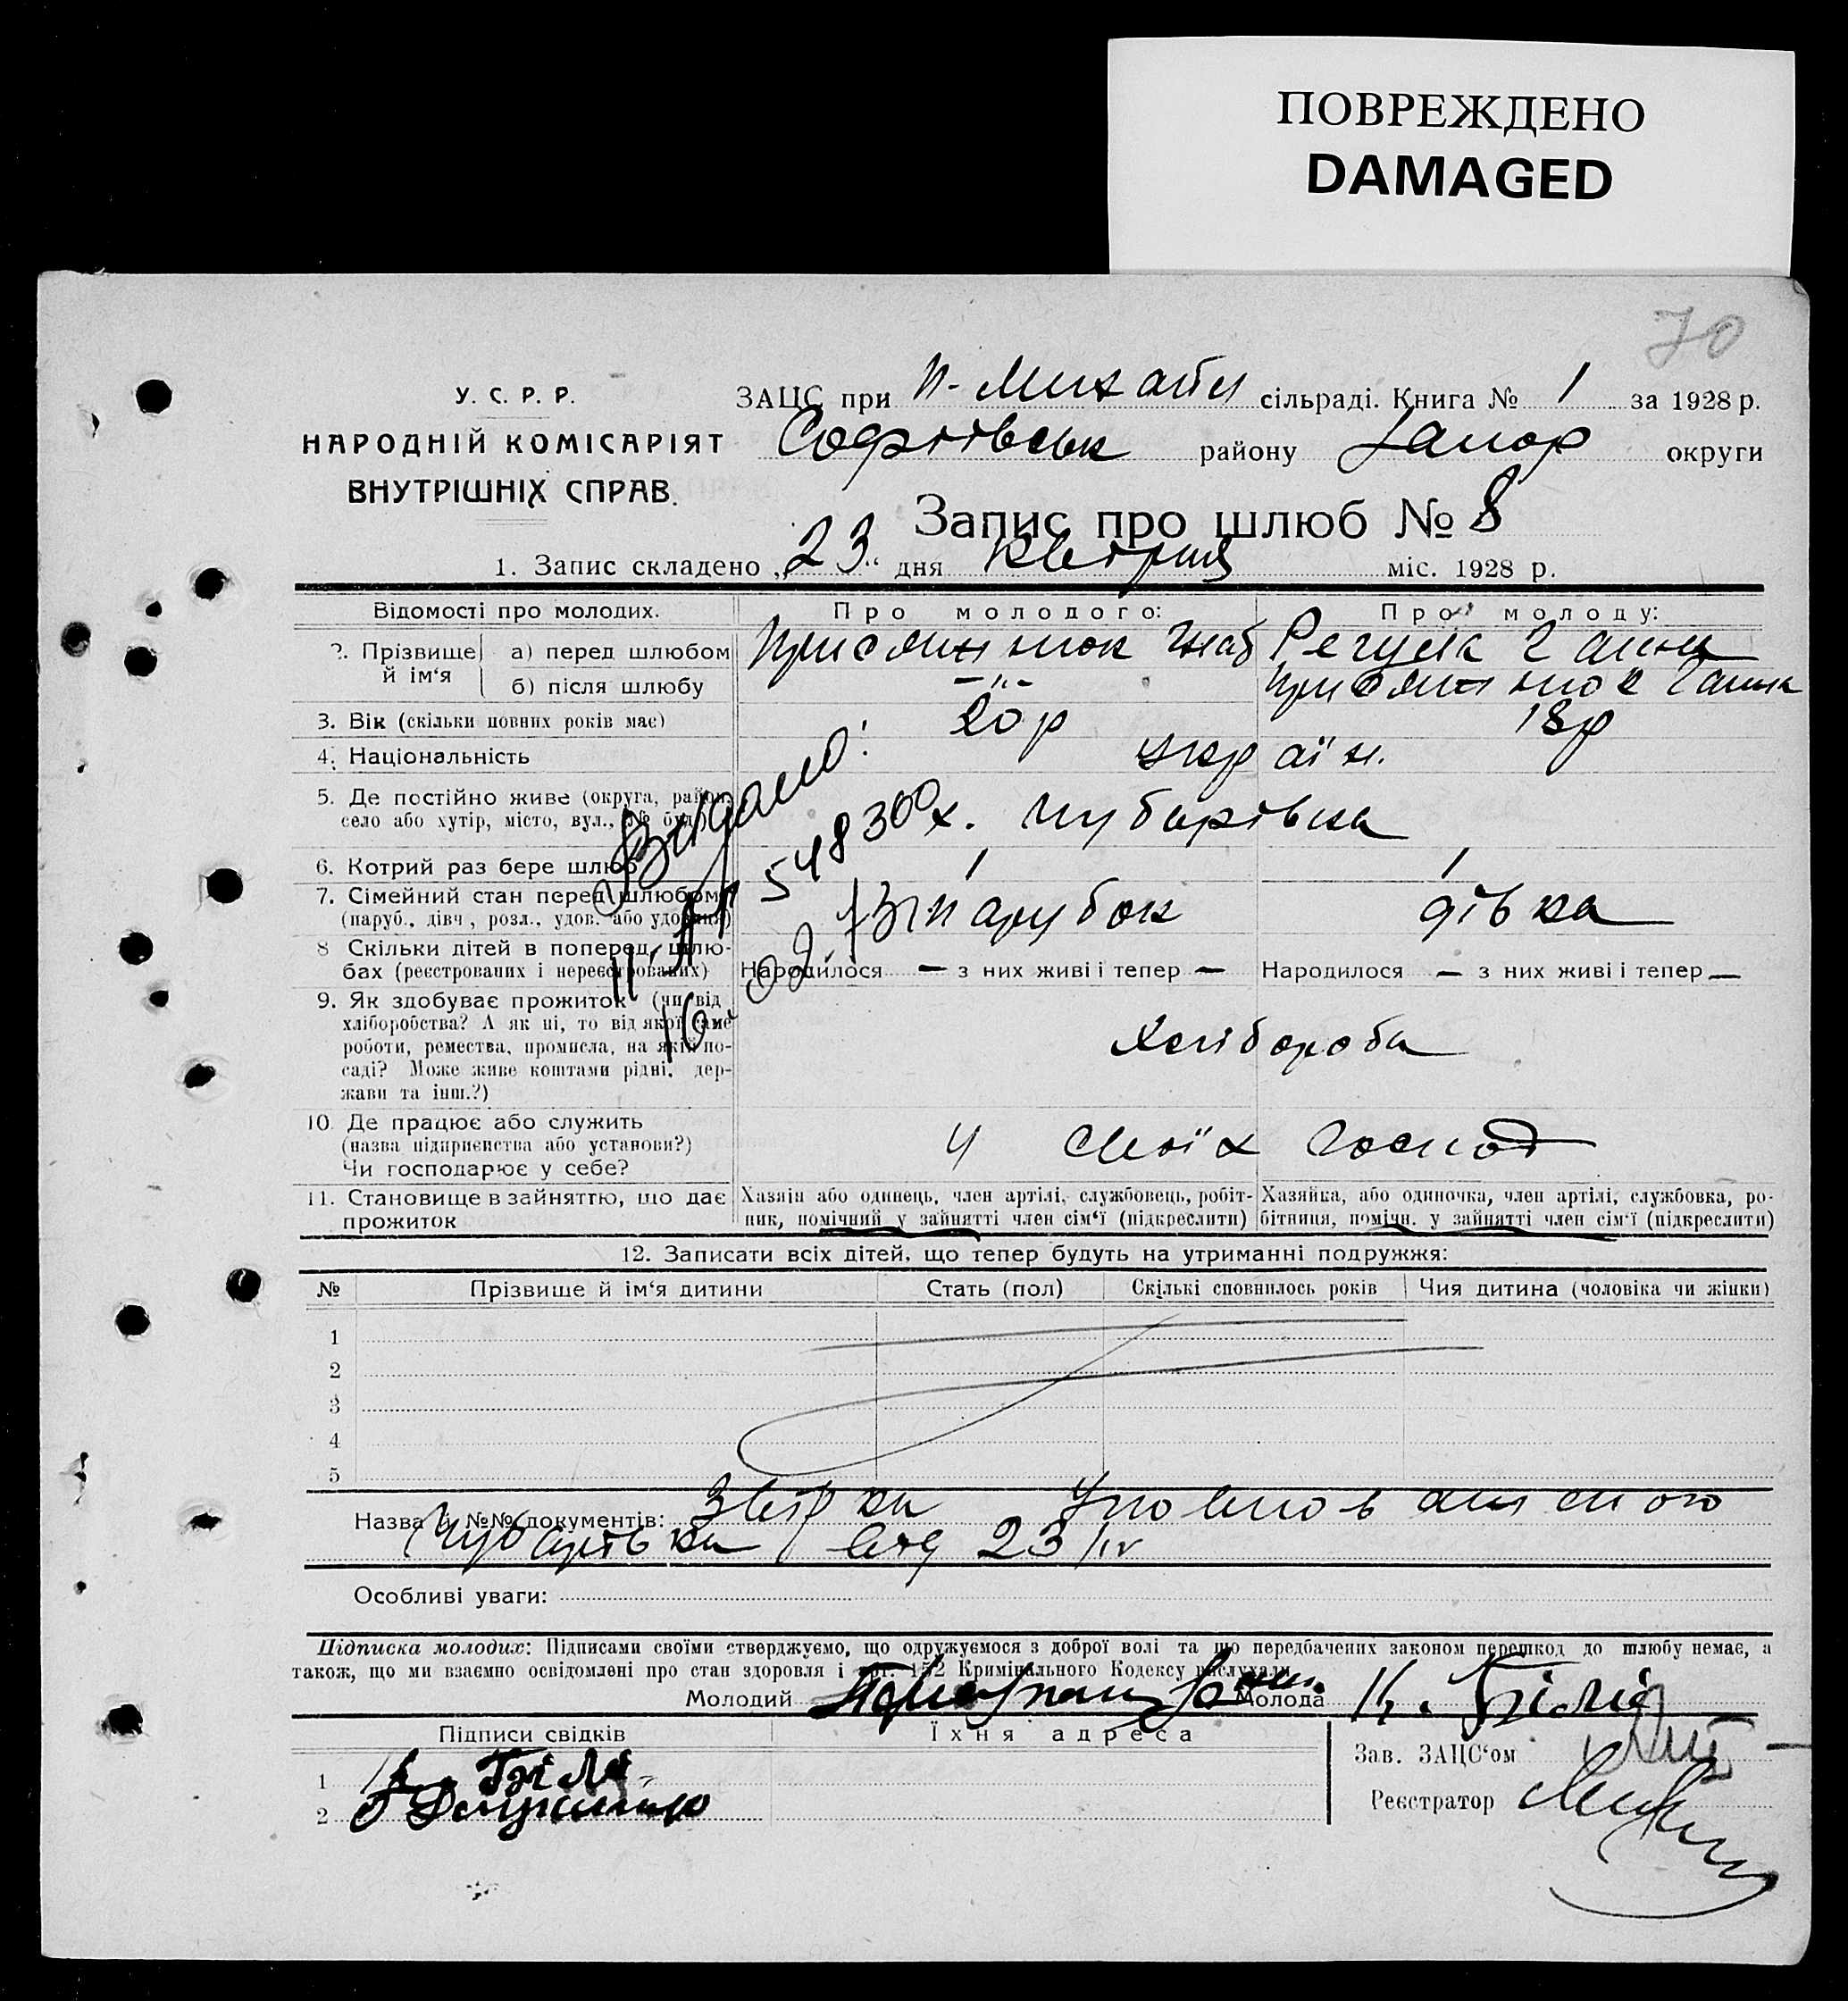 ПОВРЕЖДЕНО
DAMAGED
70
У. С. Р. Р.
НАРОДНІЙ КОМІСАРІЯТ
ВНУТРІШНІХ СПРАВ.
ЗАЦС при Н-Михайл сільраді. Книга № 1 за 1928 р.
Софіївськ району Запор округи
Запис про шлюб № 8
1. Запис складено „23“ дня квітня міс. 1928 р.
Відомості про молодих.
Про молодого:
Про молоду:
2. Прізвище й ім‘я
а) перед шлюбом
Ганна
б) після шлюбу
-„-
Ганна
3. Вік (скільки повних років має)
20 р
18 р
4. Національність
україн.
5. Де постійно живе (округа, район, село або хутір, місто, вул., № буд.)
х. Чубарівка
6. Котрий раз бере шлюб
1
1
7. Сімейний стан перед шлюбом (паруб., дівч, розл., удов. або удовиця)
парубок
дівка
8 Скільки дітей в поперед. шлюбах (реєстрованих і нереєстрованих)
Народилося — з них живі і тепер —
Народилося — з них живі і тепер —
Видано:
548300
9. Як здобуває прожиток (чи від
хліборобства? А як ні, то від якої саме
роботи, ремества, промисла, на якій по-
саді? Може живе коштами рідні, дер-
жави та інш.?)
Хлібороба
10. Де працює або служить
(назва підприємства або установи?)
Чи господарює у себе?
У своїх господ
11. Становище в зайняттю, що дає прожиток
Хазяїн або одинець, член артілі, службовець, робіт-
ник, помічний у зайнятті член сім‘ї (підкреслити)
Хазяйка, або одиночка, член артілі, службовка, ро-
бітниця, помічн. у зайнятті член сім‘ї (підкреслити)
12. Записати всіх дітей, що тепер будуть на утриманні подружжя:
№ Прізвище й ім‘я дитини Стать (пол) Скількі сповнилось років Чия дитина (чоловіка чи жінки)
1
2
3
4
5
Назва й №№ документів:
Чубарівка від 23/IV
Особливі уваги:
Підписка молодих: Підписами своїми стверджуємо, що одружуємося з доброї волі та що передбачених законом перешкод до шлюбу немає, а
також, що ми взаємно освідомлені про стан здоровля і арт. 152 Кримінального Кодексу вислухали.
Молодий
Молода
Підписи свідків
Їхня адреса
Зав. ЗАЦС‘ом
1
2
Реєстратор